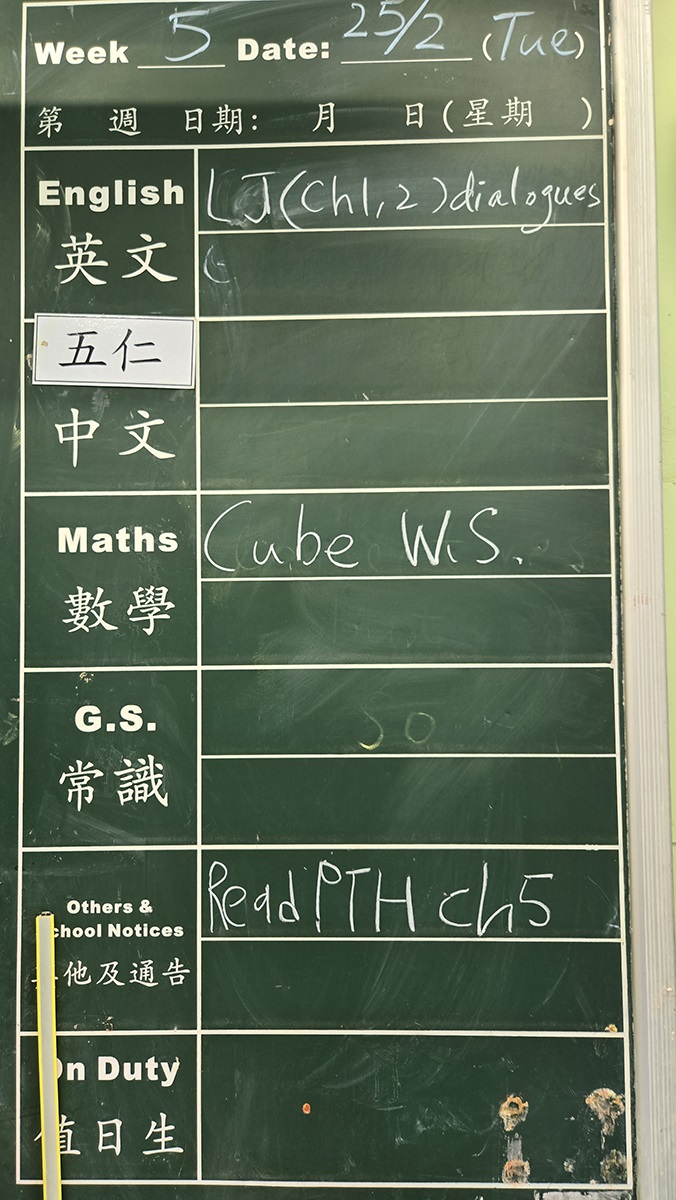 Week 5 Date: 25/2 (Tue)
第 週 日期: 月 日(星期 )
English LJ(Ch1,2)dialogues
英文
五仁
中文
Maths Cube W.S.
數學
G.S.
常識
Others &
School Notices Read PTH ch5
其他及通告
On Duty
值日生